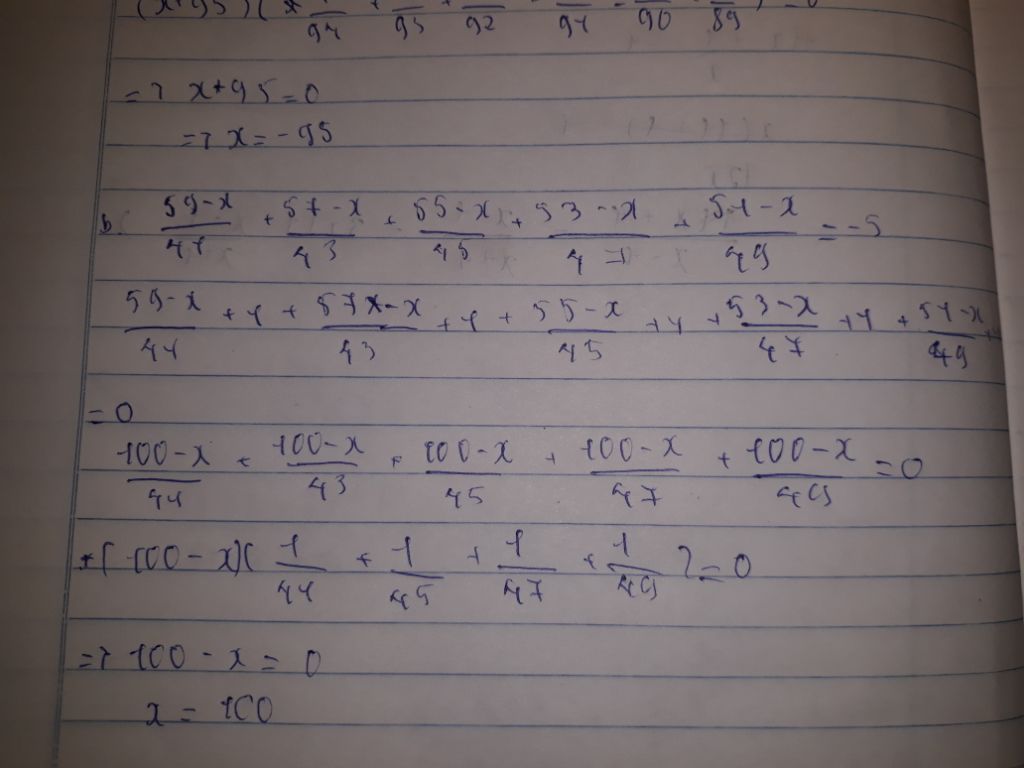 (x+95)(
94 93 92 91 90 89
=> x+95=0
=> x=-95
b, 59-x/41 + 57-x/43 + 55-x/45 + 53-x/47 + 51-x/49 = -5
59-x/41 +1+ 57x-x/43 +1+ 55-x/45 +1+ 53-x/47 +1+ 51-x/49
=0
100-x/41 + 100-x/43 + 100-x/45 + 100-x/47 + 100-x/49 =0
(100-x)( 1/41 + 1/45 + 1/47 + 1/49 )=0
=> 100-x=0
x=100